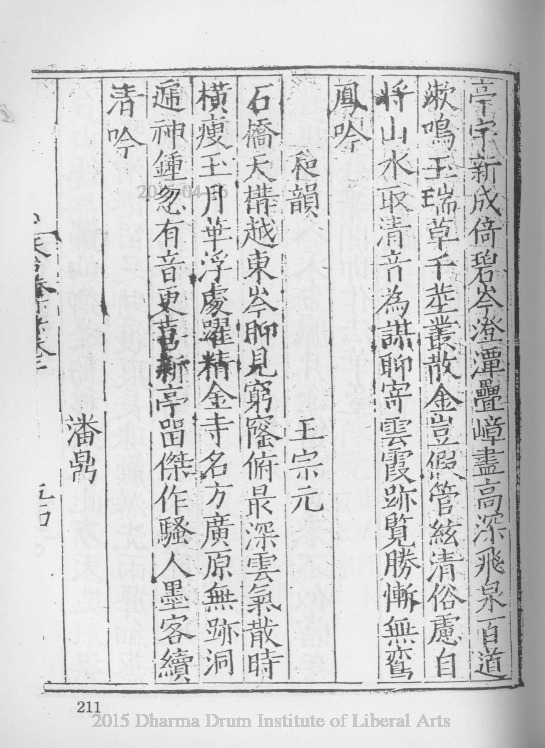 亭宇新成倚碧岑澄潭疊嶂盡高深飛泉百道
漱鳴玉瑞草千莖叢散金豈假管絃清俗慮自
將山水取清音為謀聊寄雲霞跡覽勝慚無鸞
鳳吟
和韻 王宗元
石橋天構越東岑聊見窮窿俯最深雲氣散時
橫瘦玉月華浮處躍精金寺名方廣原無跡洞
遁神鍾忽有音更喜新亭留傑作騷人墨客續
清吟
潘鼎
211
2015 Dharma Drum Institute of Liberal Arts